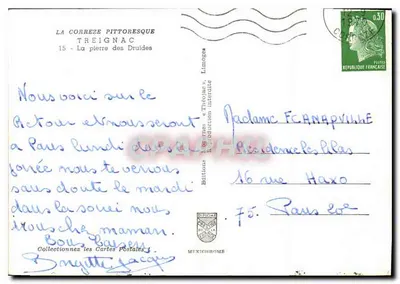 LA CORREZE PITTORESQUE
TREIGNAC
15 - La pierre des Druides
0,30
REPUBLIQUE FRANCAISE
Nous voici sur le
Retour et nous serons
a Paris lundi dans la
nous te verrons
sans doute le mardi
dans la soirée nous
maman.
Bons baisers
Brigitte Jacques
Madame
Residence les lilas
16 rue Haxo
75. Paris 20e
"Théojac", Limoges
MEXICHROME
Collectionnez les Cartes Postales !